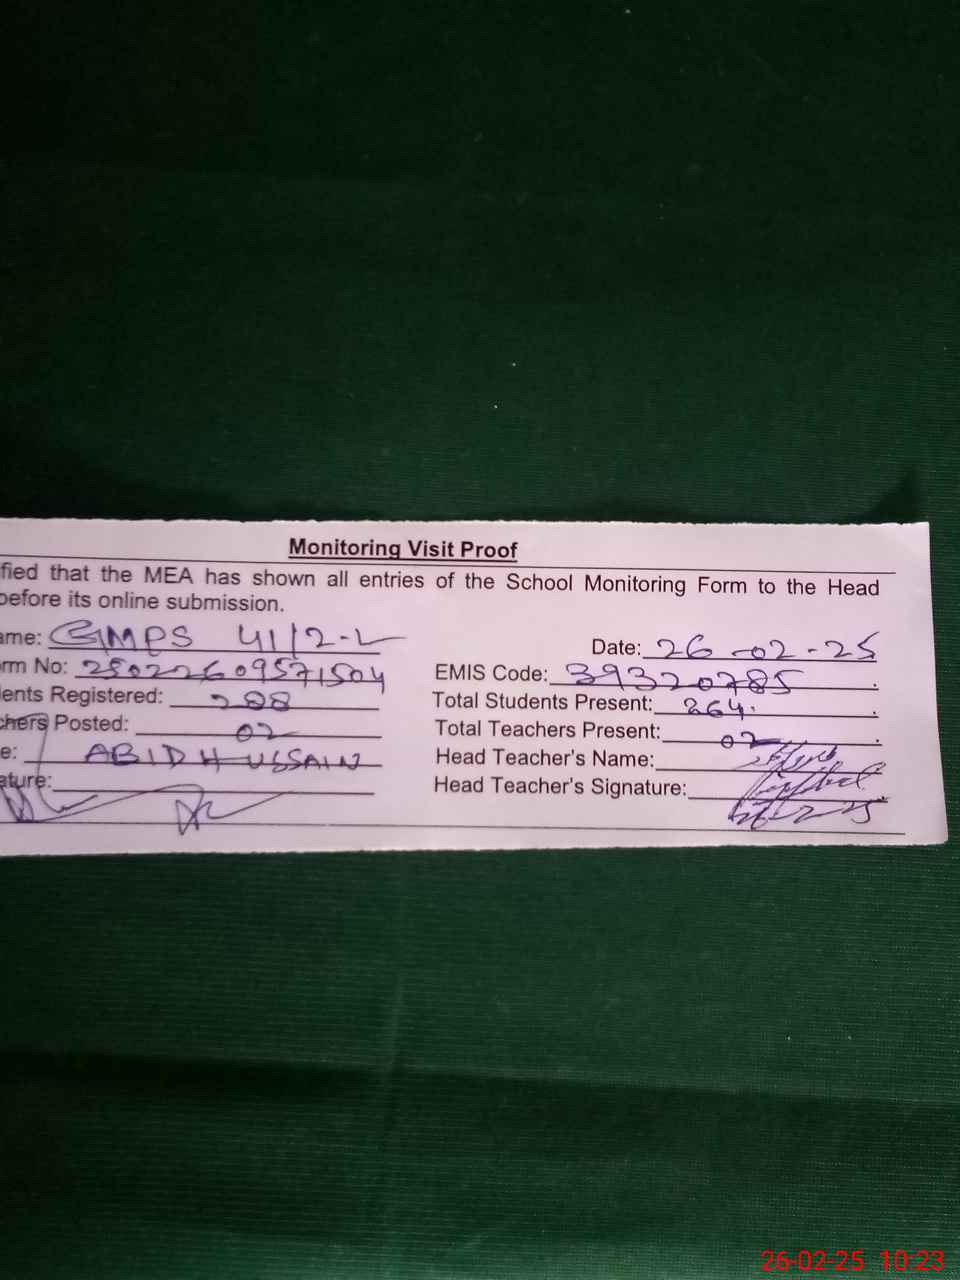 Monitoring Visit Proof
fied that the MEA has shown all entries of the School Monitoring Form to the Head
before its online submission.
ame: GMPS 41/2-L Date: 26-02-25
rm No: 25022609571504 EMIS Code: 39320785.
ents Registered: 288 Total Students Present: 264.
chers Posted: 02 Total Teachers Present: 02.
e: ABID HUSSAIN Head Teacher's Name:
ature: Head Teacher's Signature:
26-2-25
26-02-25 10:23